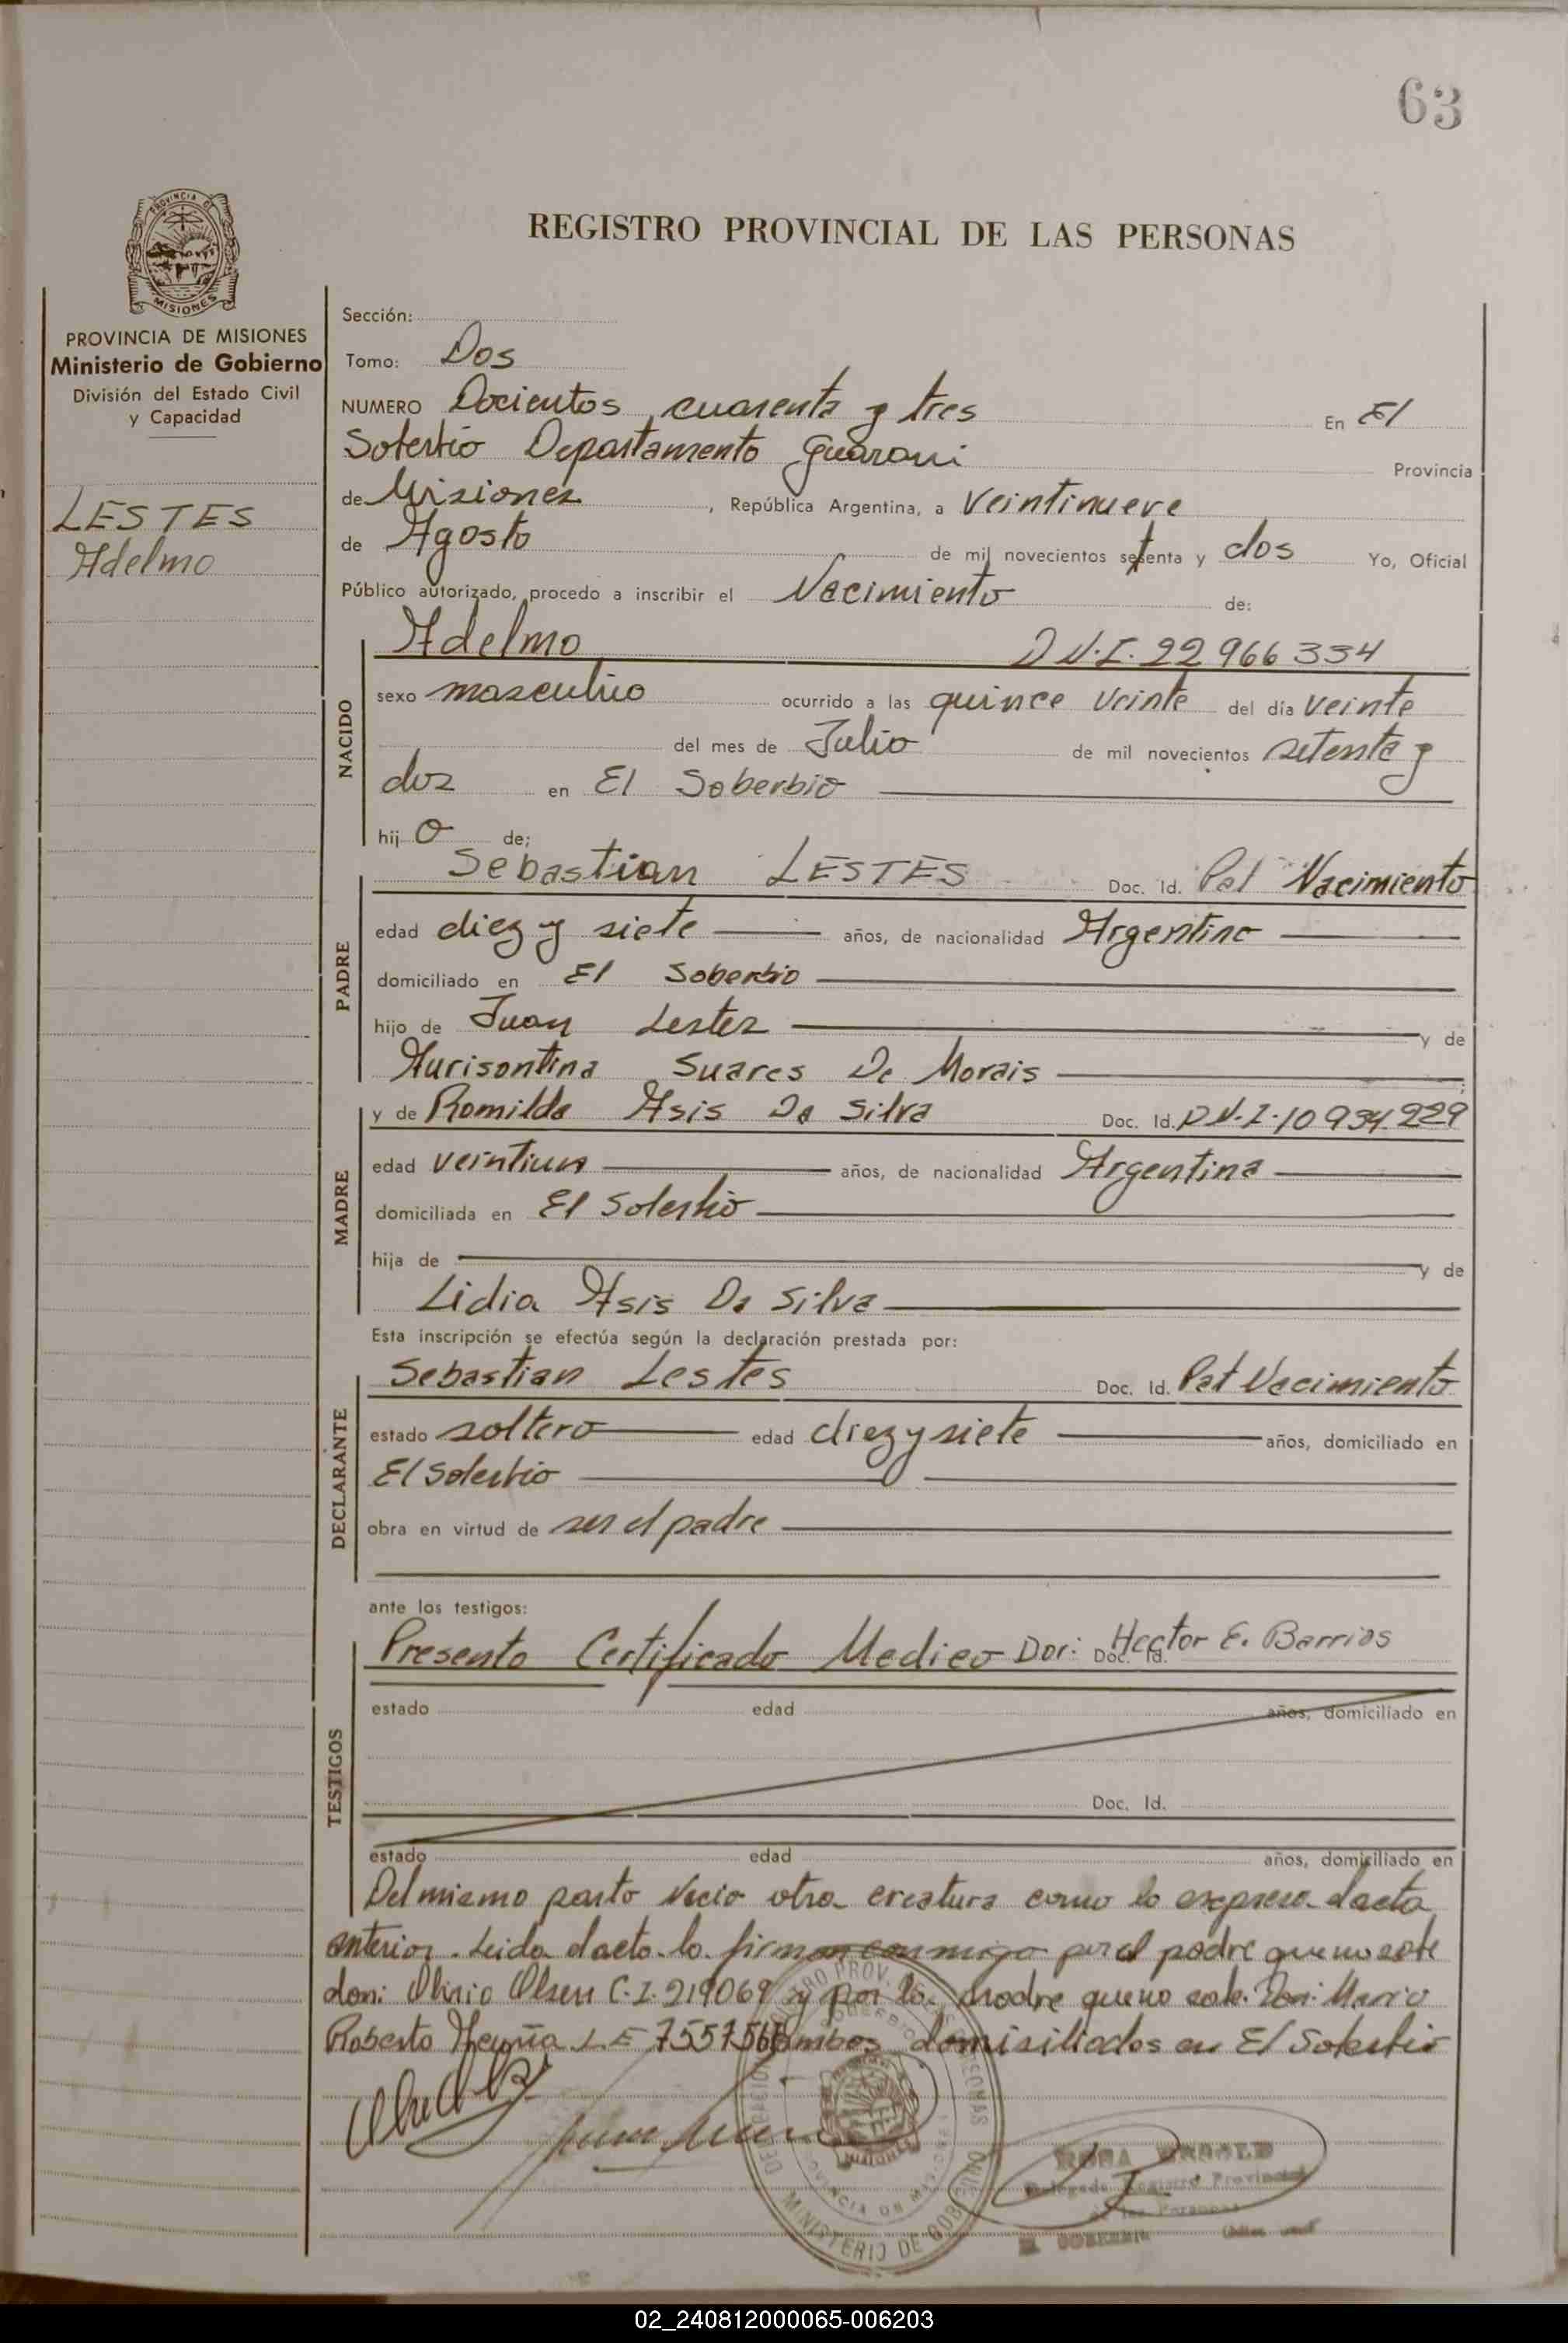 63
PROVINCIA DE
MISIONES
REGISTRO PROVINCIAL DE LAS PERSONAS
PROVINCIA DE MISIONES
Ministerio de Gobierno
División del Estado Civil
y Capacidad
LESTES
Adelmo
Sección:
Tomo: Dos
NUMERO Docientos cuarenta y tres En El
Soberbio Departamento Guarani Provincia
de Misiones, República Argentina, a Veintinueve
de Agosto de mil novecientos setenta y dos Yo, Oficial
Público autorizado, procedo a inscribir el Nacimiento de:
NACIDO
Adelmo D N.I. 22 966 334
sexo masculino ocurrido a las quince veinte del día veinte
del mes de Julio de mil novecientos setenta y
dos en El Soberbio
hijo de;
PADRE
Sebastian LESTES Doc. Id. Pat Nacimiento
edad diez y siete años, de nacionalidad Argentino
domiciliado en El Soberbio
hijo de Juan Lestes y de
Aurisontina Suares De Morais;
MADRE
y de Romilda Asis Da Silva Doc. Id. D N.I. 10 934 229
edad veintiun años, de nacionalidad Argentina
domiciliada en El Soberbio
hija de y de
Lidia Asis Da Silva
Esta inscripción se efectúa según la declaración prestada por:
DECLARANTE
Sebastian Lestes Doc. Id. Pat Nacimiento
estado soltero edad diez y siete años, domiciliado en
El Soberbio
obra en virtud de ser el padre
ante los testigos:
TESTIGOS
Presento Certificado Medico Dor: Hector E. Barrios Doc. Id.
estado edad años, domiciliado en
Doc. Id.
estado edad años, domiciliado en
Del mismo parto Nacio otra creatura como lo expresa el acta
anterior. Leida el acta la firman conmigo por el padre que no sabe
don: Olsen C.I. 219069 y por la madre que no sabe. Don: Mario
Roberto L E 7557566 ambos domisiliados en El Soberbio
MINISTERIO DE GOBIERNO
PROVINCIA DE MISIONES
Delegada Registro Provincial
de las Personas
EL SOBERBIO
02_240812000065-006203